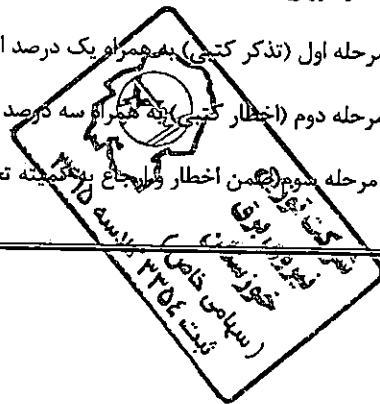 مرحله اول (تذکر کتبی) به همراه یک درصد
مرحله دوم (اخطار کتبی) به همراه سه درصد
مرحله سوم ضمن اخطار و ارجاع به کمیته
شرکت توزیع
نیروی برق
خوزستان
(سهامی خاص)
ثبت ۳۳۵۴